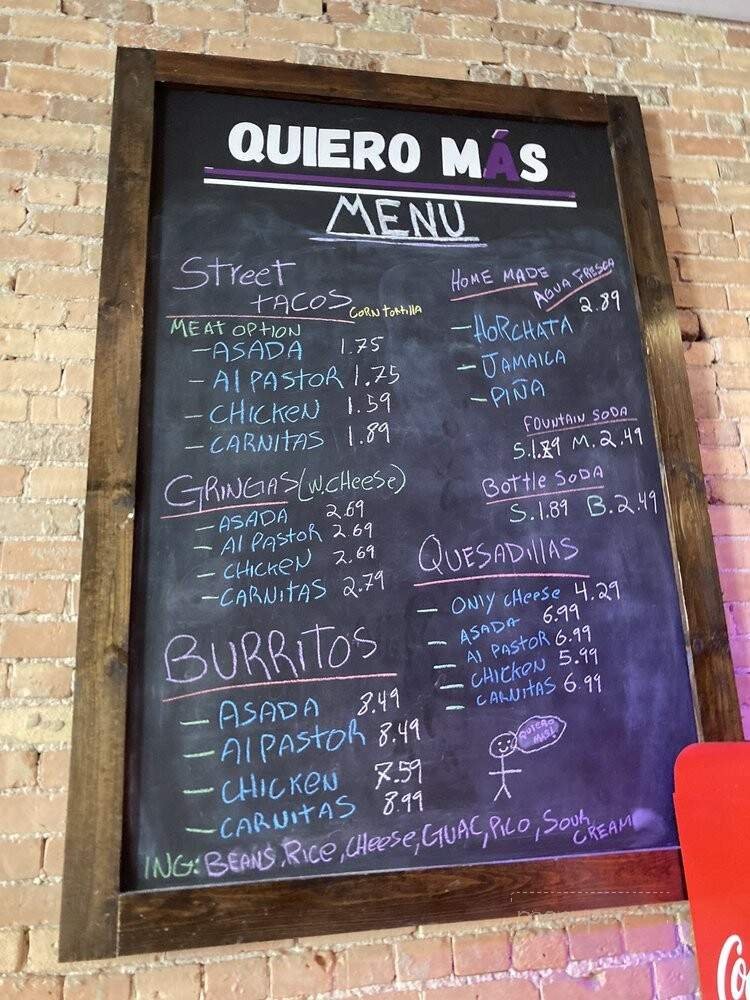 QUIERO MÁS
MENU
Street
TACOS CORN tORtillA
MEAT OPTION
- ASADA 1.75
- Al PASTOR 1.75
- CHICKEN 1.59
- CARNITAS 1.89
GRINGAS (W.CHeese)
- ASADA 2.69
- Al PASTOR 2.69
- CHICKEN 2.69
- CARNITAS 2.79
BURRITOS
- ASADA 8.49
- Al PASTOR 8.49
- CHICKEN 7.59
- CARNITAS 8.99
HOME MADE
AGUA FRESCA
2.89
- HORCHATA
- JAMAICA
- PIÑA
FOUNTAIN SODA
S.1.89 M.2.49
Bottle SODA
S.1.89 B.2.49
QUESADILLAS
- ONLY CHeese 4.29
- ASADA 6.99
- Al PASTOR 6.99
- CHICKEN 5.99
- CARNITAS 6.99
QUIERO
MAS!
ING: BEANS, RICE, CHEESE, GUAC, PICO, SOUR
CREAM